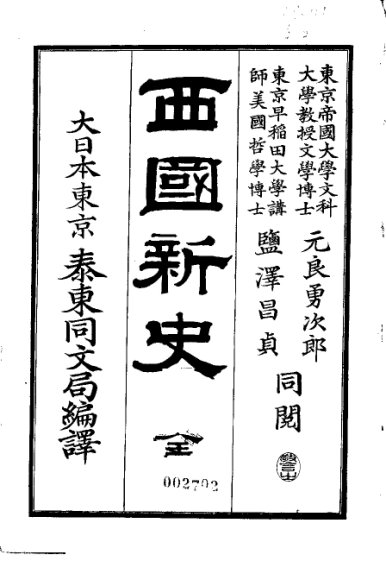 東京帝國大學文科
大學教授文學博士
元良勇次郎
東京早稲田大學講
師美國哲學博士
鹽澤昌貞
同閲
西國新史
全
002702
大日本東京泰東同文局編譯